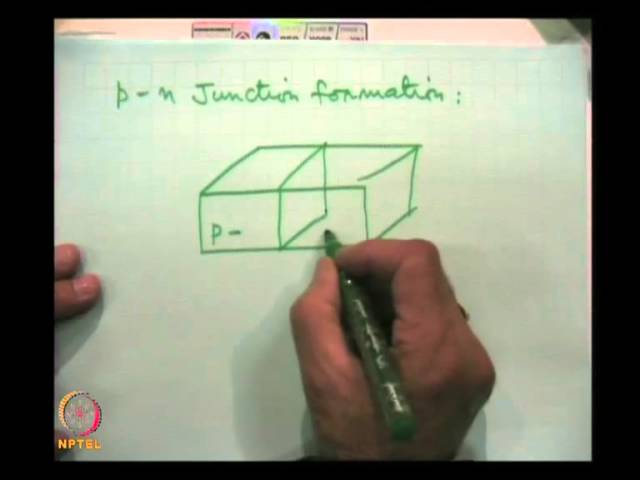 p - n Junction formation :
p -
NPTEL